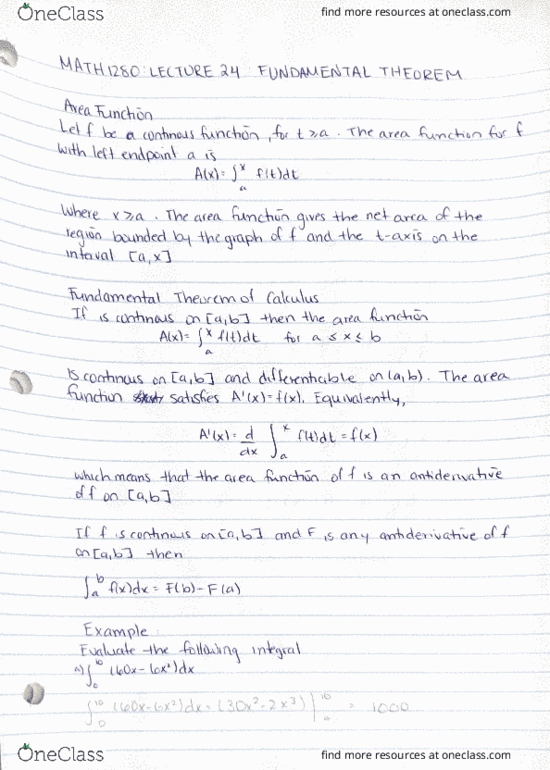 OneClass
find more resources at oneclass.com
MATH 1280: LECTURE 24: FUNDAMENTAL THEOREM
Area Function
Let f be a continous function, for t ≥ a. The area function for f
with left endpoint a is
A(x) = ∫ₐˣ f(t)dt
Where x ≥ a. The area function gives the net area of the
region bounded by the graph of f and the t-axis on the
interval [a,x]
Fundamental Theorem of Calculus
If is continous on [a,b] then the area function
A(x) = ∫ₐˣ f(t)dt for a ≤ x ≤ b
is continous on [a,b] and differentiable on (a,b). The area
function satisfies A'(x) = f(x). Equivalently,
A'(x) = d/dx ∫ₐˣ f(t)dt = f(x)
which means that the area function of f is an antiderivative
of f on [a,b]
If f is continous on [a,b] and F is any antiderivative of f
on [a,b] then
∫ₐᵇ f(x)dx = F(b) - F(a)
Example
Evaluate the following integral
a) ∫₀¹⁰ (60x - 6x²)dx
∫₀¹⁰ (60x - 6x²)dx = (30x² - 2x³) |₀¹⁰ = 1000
OneClass
find more resources at oneclass.com